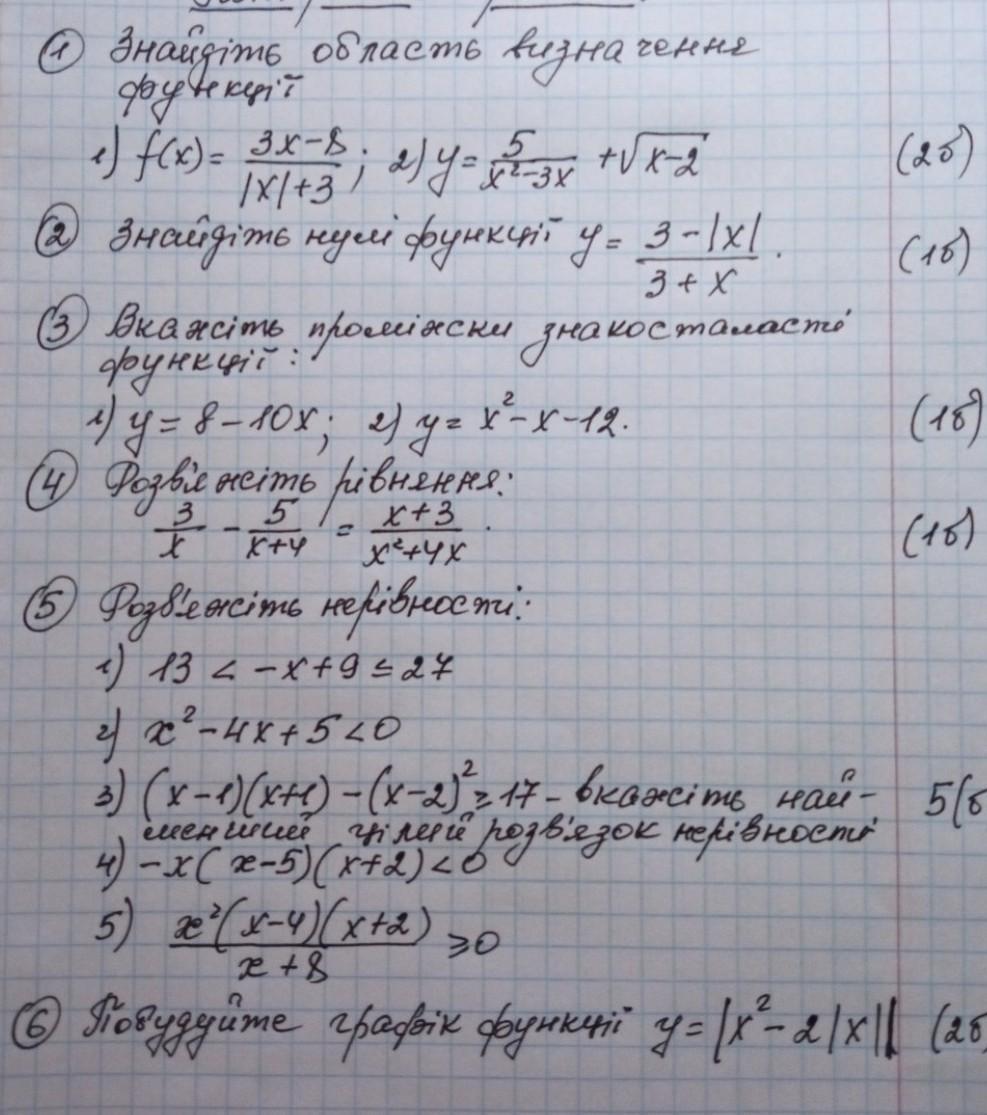 ① Знайдіть область визначення
функції
1) f(x) = (3x-8)/(|x|+3); 2) y = 5/(x²-3x) + √(x-2) (2б)
② Знайдіть нулі функції y = (3-|x|)/(3+x). (1б)
③ Вкажіть проміжки знакосталості
функції:
1) y = 8-10x; 2) y = x²-x-12. (1б)
④ Розв'яжіть рівняння:
3/x - 5/(x+4) = (x+3)/(x²+4x). (1б)
⑤ Розв'яжіть нерівності:
1) 13 < -x+9 ≤ 27
2) x²-4x+5<0
3) (x-1)(x+1)-(x-2)² ≥ 17 - вкажіть най- 5(б
менший цілий розв'язок нерівності
4) -x(x-5)(x+2)<0
5) x²(x-4)(x+2)/(x+8) ≥ 0
⑥ Побудуйте графік функції y = |x²-2|x|| (2б